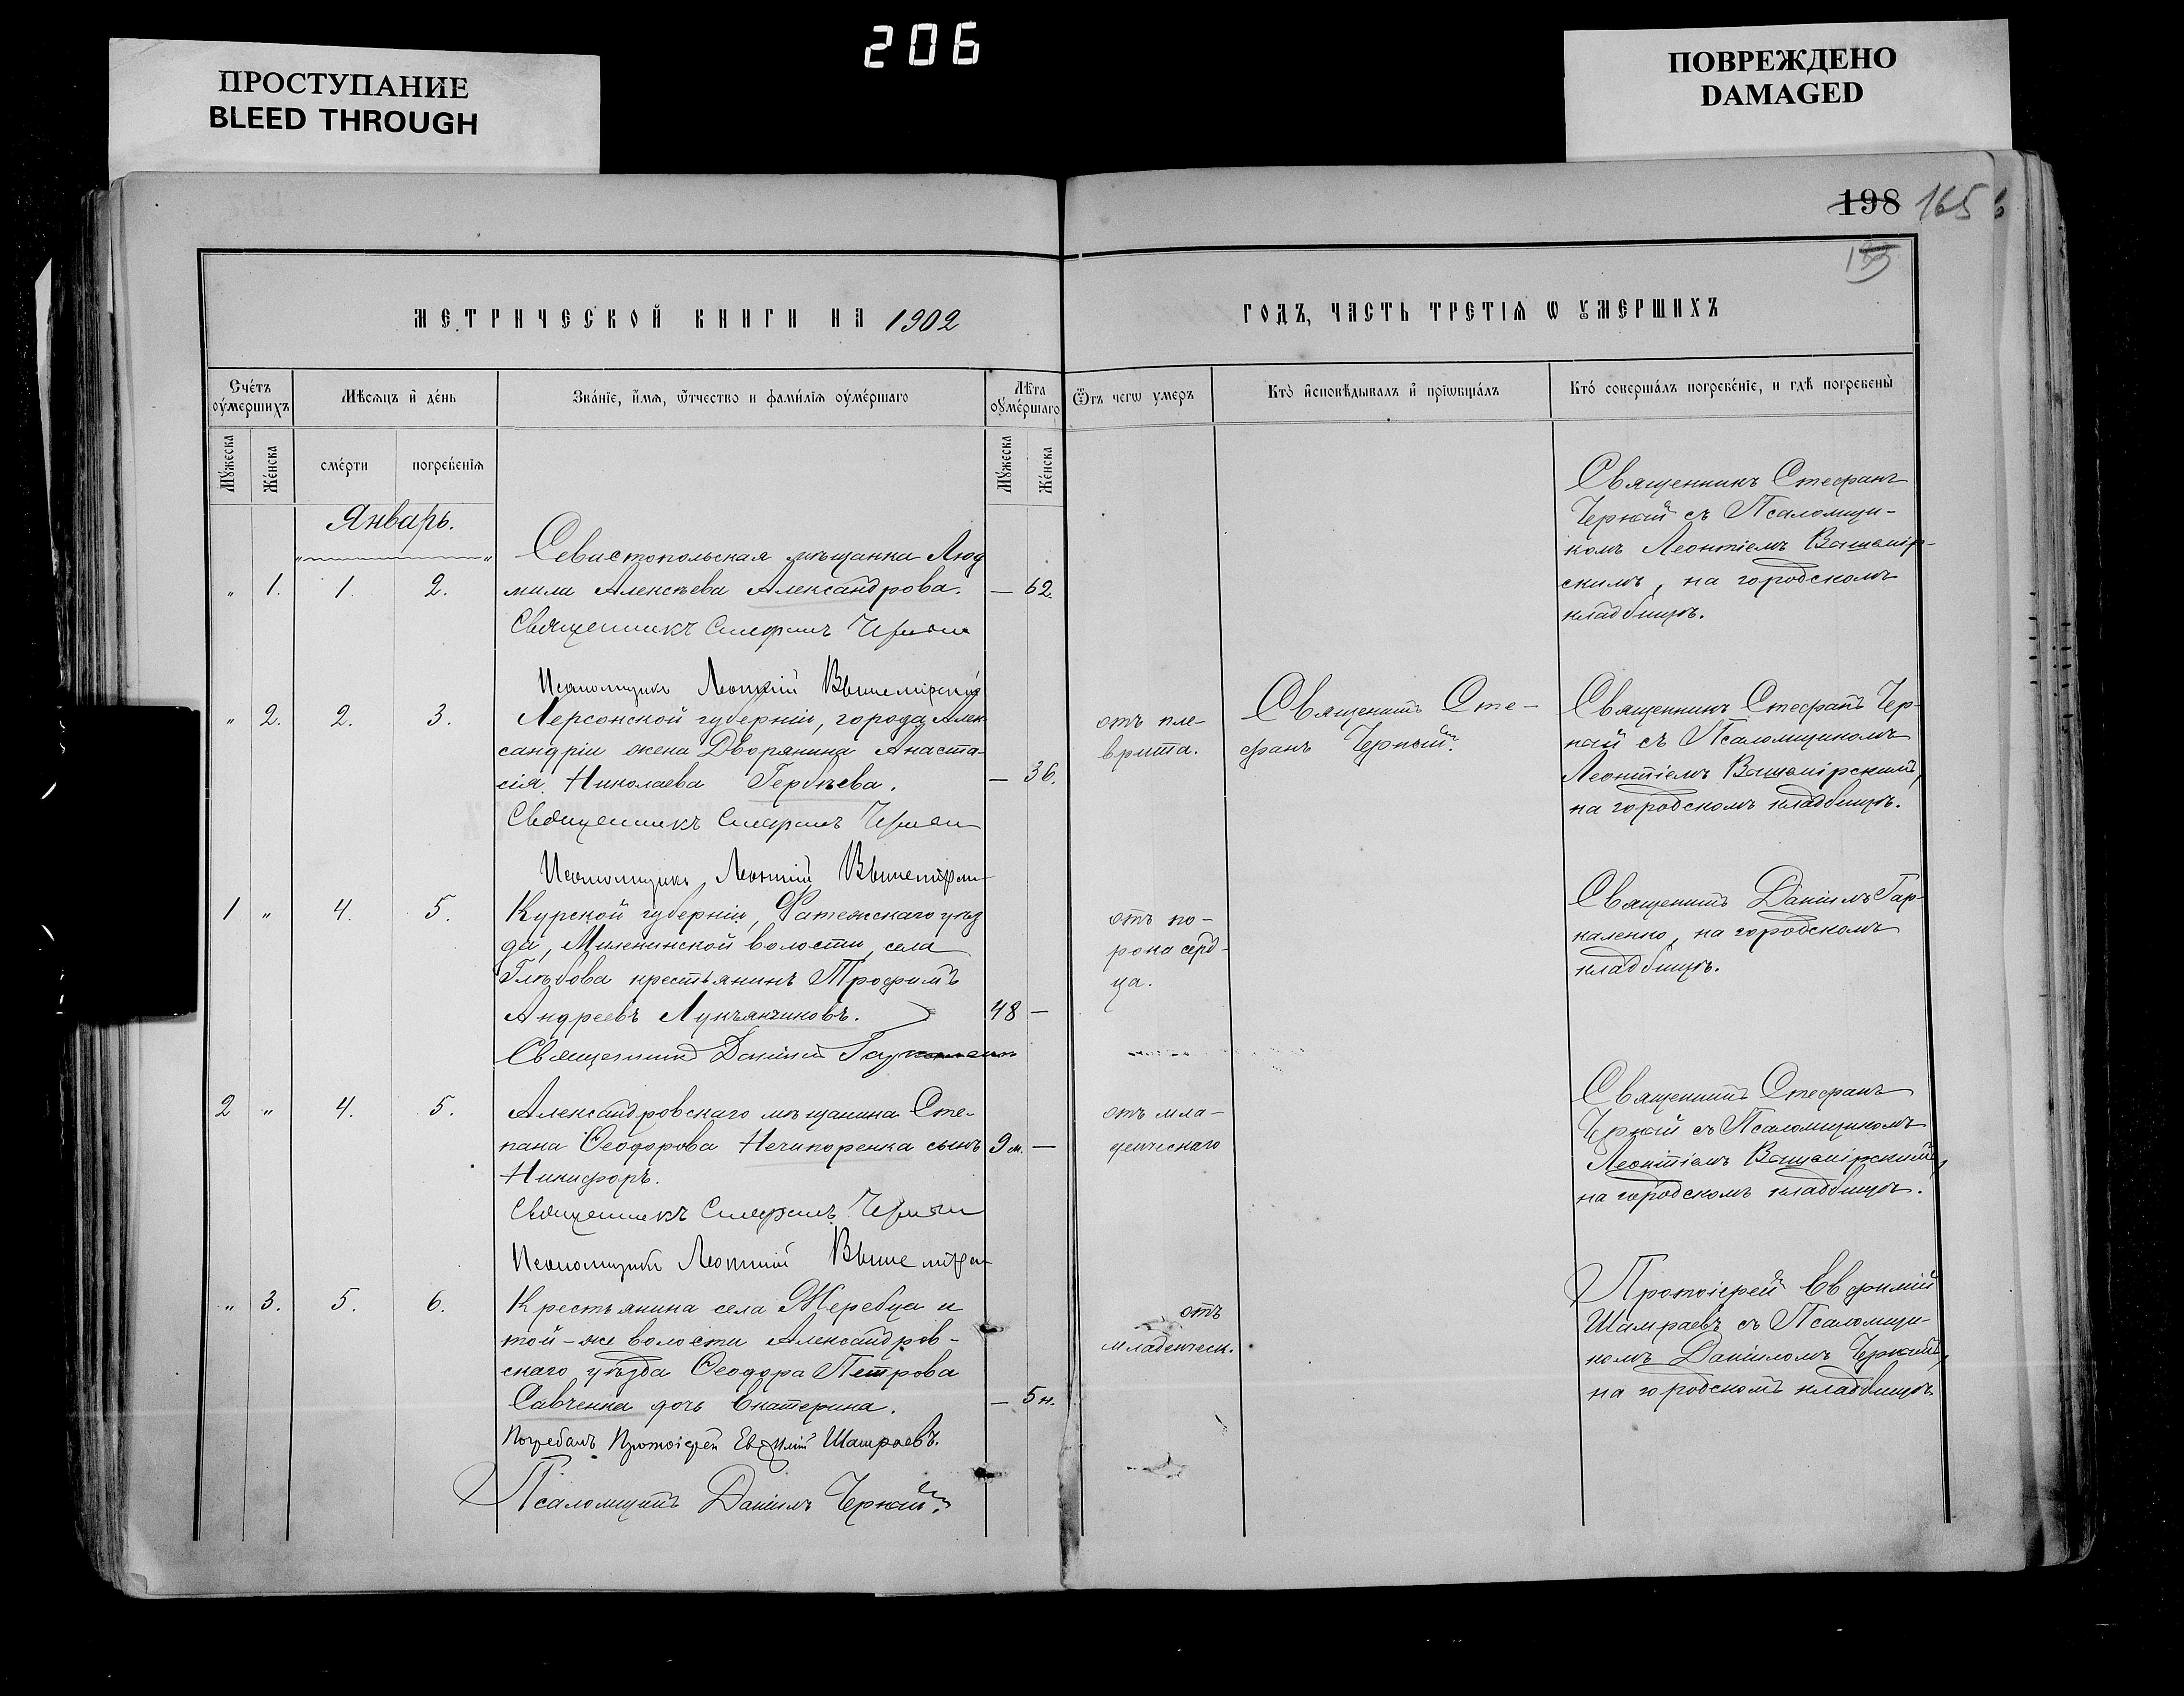 206
ПРОСТУПАНИЕ
BLEED THROUGH
ПОВРЕЖДЕНО
DAMAGED
198 165
МЕТРИЧЕСКОЙ КНИГИ НА 1902
ГОДЪ, ЧАСТЬ ТРЕТІѦ Ѡ ОУМЕРШИХЪ
Счéтъ оумéршихъ
Мѣсяцъ и дéнь
Звáніе, имя, отчество и фамилія оумéршаго
Лѣта оумéршаго
Ѿ чегѡ умеръ
Ктò исповѣдывалъ и прїѡбщáлъ
Ктó совершáлъ погребéніе, и гдѣ погребены
Мужеска
Женска
смéрти
погребéнїя
Мужеска
Женска
Январь.
Севастопольская мѣщанка Люд
" 1. 1. 2. мила Алексѣева Александрова. — 62.
Священникъ Стефанъ Черный
Псаломщикъ Леонтій Вышемірскій
Священникъ Стефанъ
Черный съ Псаломщи-
комъ Леонтіемъ Вышемір-
скимъ, на городскомъ
кладбищѣ.
" 2. 2. 3. Херсонской губерніи, города Алек
сандріи жена Дворянина Анаста-
сія Николаева Гербѣева. — 36.
Священникъ Стефанъ Черный
Псаломщикъ Леонтій Вышемірскій
отъ пле-
врита.
Священникъ Сте-
фанъ Черный.
Священникъ Стефанъ Чер-
ный съ Псаломщикомъ
Леонтіемъ Вышемірскимъ,
на городскомъ кладбищѣ.
1 " 4. 5. Курской губерніи, Фатежскаго уѣз
да, Миленинской волости, села
Глѣбова крестьянинъ Трофимъ
Андреевъ Лукъянчиковъ. 48 —
Священникъ Даніилъ Гаркаленко
отъ по-
рока серд-
ца.
Священникъ Даніилъ Гар-
каленко, на городскомъ
кладбищѣ.
2 " 4. 5. Александровскаго мѣщанина Сте-
пана Ѳеодорова Нечипоренка сынъ 9 м. —
Никифоръ.
Священникъ Стефанъ Черный
Псаломщикъ Леонтій Вышемірскій
отъ мла-
денческаго
Священникъ Стефанъ
Черный съ Псаломщикомъ
Леонтіемъ Вышемірскимъ,
на городскомъ кладбищѣ.
" 3. 5. 6. Крестьянина села Жеребца и
той-же волости Александров-
скаго уѣзда Ѳеодора Петрова
Савченка дочь Екатерина. — 5 н.
Погребалъ Протоіерей Евфимій Шамраевъ.
Псаломщикъ Даніилъ Черный.
отъ
младенческ.
Протоіерей Евфимій
Шамраевъ съ Псаломщи-
комъ Даніиломъ Чернымъ,
на городскомъ кладбищѣ